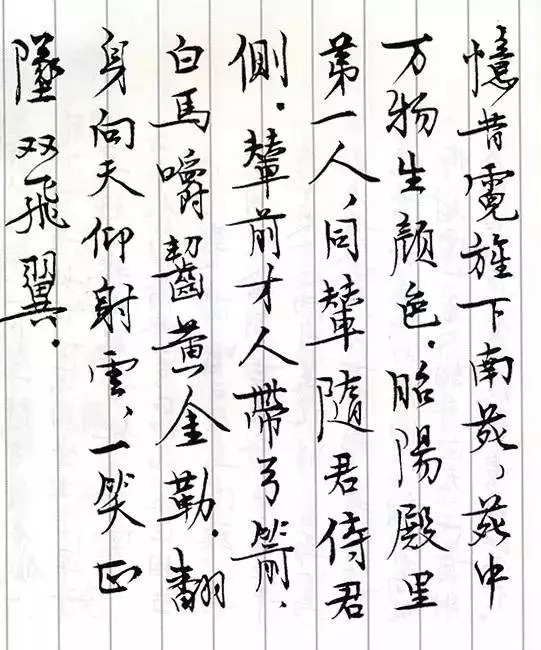 憶昔霓旌下南苑,苑中
万物生颜色.昭陽殿里
第一人,同輦隨君侍君
側.輦前才人帶弓箭,
白馬嚼齧黄金勒.翻
身向天仰射雲,一笑正
墜双飛翼.